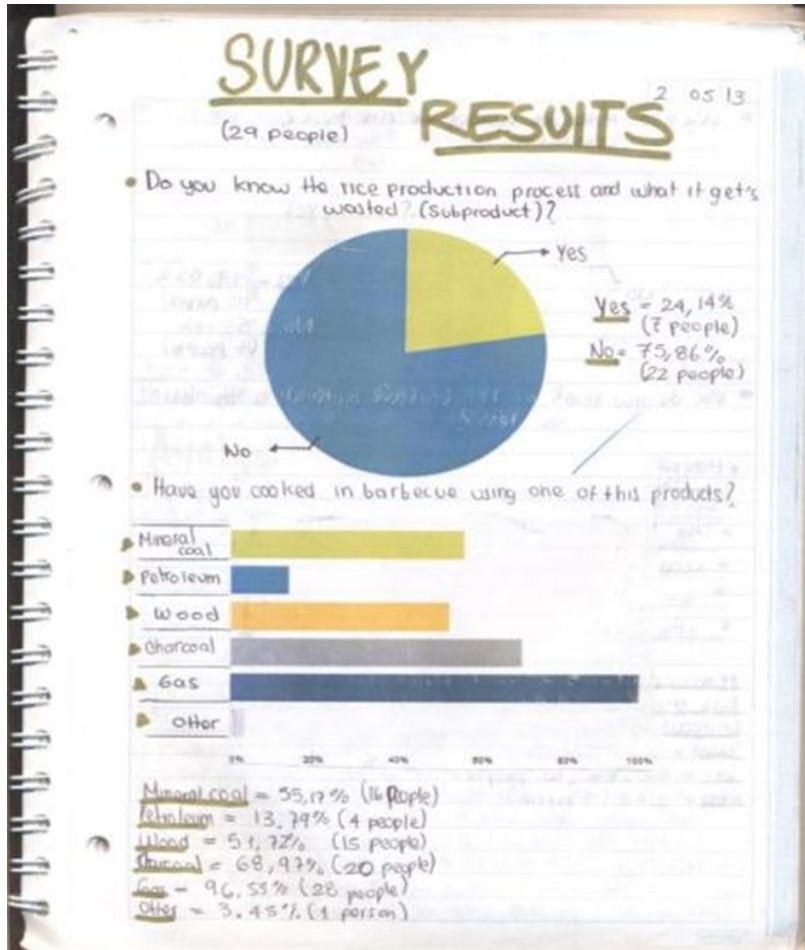 SURVEY
2 05 13
(29 people)
RESUltS
• Do you know the rice production process and what it get's
wasted? (Subproduct)?
Yes
Yes = 24,14%
(7 people)
No = 75,86%
(22 people)
No
• Have you cooked in barbecue using one of this products?
Mineral
coal
Petroleum
Wood
Charcoal
Gas
Otter
0% 20% 40% 60% 80% 100%
Mineral coal = 55,17% (16 People)
Petroleum = 13.79% (4 people)
Wood = 51,72% (15 people)
Charcoal = 68,97% (20 people)
Gas = 96.55% (28 people)
Otter = 3.45% (1 person)